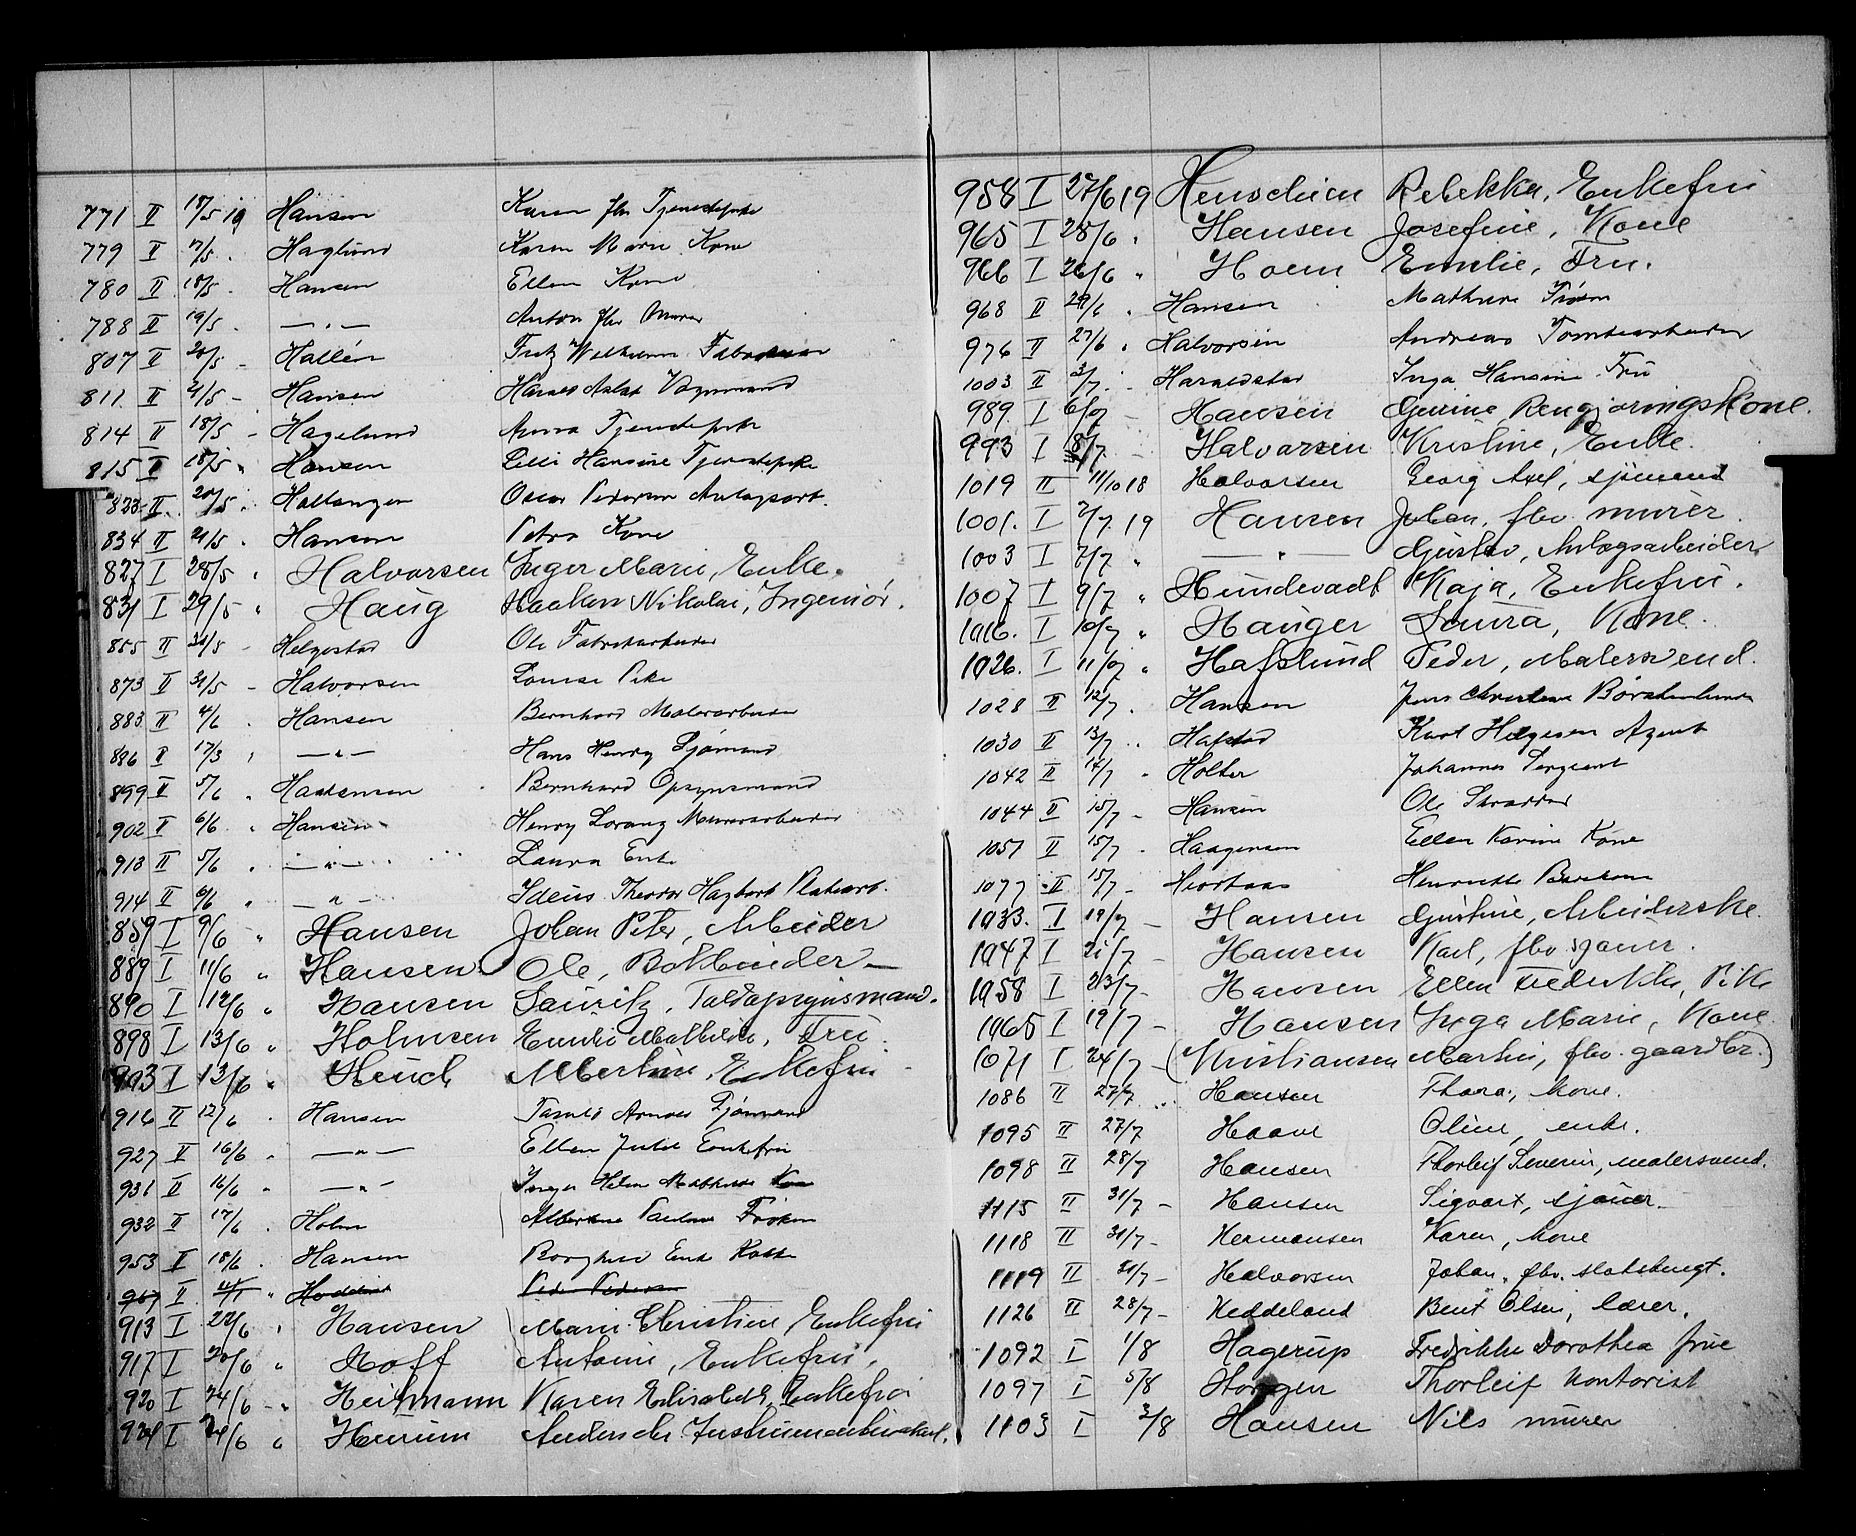 771 II 18/5 19 Hansen Karen fhv Tjenestepike
779 II 17/5 . Haglund Karen Marie Kone
780 II 18/5 - Hansen Ellen Kone
788 II 19/5 . — " — Anton fhv Murer
807 II 20/5 - Hallén Fritz Wilhelm
811 II 21/5 - Hansen Harald Vognmand
814 II 18/5 - Hagelund Anna Tjenestepike
815 II 18/5 " Hansen Lilli Hansine Tjenestepike
823 II 20/5 . Oscar Pedersen Anlægsarb.
834 II 21/5 . Hansen Petra Kone
827 I 28/5 " Halvorsen Inger Marie, Enke.
831 I 29/5 " Haug Haakon Nikolai, Ingeniør.
855 II 30/5 - Helgestad Ole Fabrikarbeider
873 II 31/5 - Halvorsen Lovise Pike
883 II 4/6 . Hansen Bernhard Malerarbeider
886 II 17/3 " — " — Hans Henry Sjømand
899 II 5/6 . Bernhard Opsynsmand
902 II 6/6 " Hansen Henry Lorang Murerarbeider
913 II 5/6 " — " — Laura Enke
914 II 6/6 " — " — Theodor Hagbart Platearb.
859 I 9/6 " Hansen Johan Peter, Arbeider
889 I 11/6 " Hansen Ole, Bokbinder —
890 I 12/6 " Hansen Lauritz, Toldopsynsmand.
898 I 13/6 " Holmsen Emilie Mathilde, Fru.
903 I 13/6 " Heuch Albertine, Enkefru
916 II 12/6 . Hansen Arnold Sjømand
927 II 16/6 " — " — Ellen Julie Enkefru
931 II 16/6 " — " — Inger Helen Mathilde Kone
932 II 17/6 . Holm Albertine Pauline Frøken
953 II 18/6 . Hansen Borghild
967 II " Peder Pedersen
913 I 22/6 " Hansen Marie Christine, Enkefru
917 I 20/6 " Hoff Antonie, Enkefru.
920 I 24/6 - " Heitmann Karen Elisabeth, Enkefru
924 I 24/6 " Heurum
958 I 27/6 19 Henschien Rebekka, Enkefru
965 I 28/6 " Hansen Josefine, Kone
966 I 26/6 " Hoem Emilie, Fru.
968 II 29/6 " Hansen Mathilde Frøken
976 II 27/6 " Halvorsen Andreas Tomtearbeider
1003 II 3/7 . Haraldstad Inga Hansine Fru
989. I 6/7 - Hansen Gurine Rengjøringskone.
993 I 8/7 - Halvorsen Kristine, Enke.
1019 II 11/10 18 Halvorsen Georg Axel, sjømand
1001. I 2/7 19 Hansen Johan, fhv. murer.
1003 I 7/7 " — " — Gustav, Anlægsarbeider
1007 I 9/7 " Hundevadt Kaja, Enkefru.
1016. I 10/7 " Hauger Laura, Kone.
1026. I 11/7 " Hafslund Peder, Malersvend.
1028 II 12/7 . Hansen Jens Christian Børstenbinder
1030 II 13/7 " Hafstad Karl Helgesen Agent
1042 II 14/7 " Holter Johannes Sergeant
1044 II 15/7 - Hansen Ole Skrædder
1057 II 15/7 . Haagensen Ellen Karine Kone
1077 II 15/7 - Hiortaas Henriette
1033. I 19/7 - Hansen Gustine, Arbeiderske.
1047 I 21/7 - Hansen Karl, fhv. sjauer.
1058 I 23/7 - Hansen Ellen Fredrikke, Pike
1065 I 19/7 - Hansen Inga Marie, Kone
1071 I 24/7 - (Kristiansen Martin, fhv. gaardbr.)
1086 II 27/7 Hansen Thora, kone.
1095 II 27/7 Haave Oline, enke.
1098 II 28/7 Hansen Thorleif Severin, malersvend.
1115 II 31/7 - Hansen Sigvart, sjauer.
1118 II 31/7 - Hermansen Karen, kone
1119 II 31/7 - Halvorsen Johan. fhv. slotsbetgt.
1126 II 28/7 - Heddeland Bent Olsen, lærer.
1092 I 1/8 Hagerup Fredrikke Dorothea frue
1097 I 5/8 Horgen Thorleif kontorist
1103 I 3/8 Hansen Nils murer